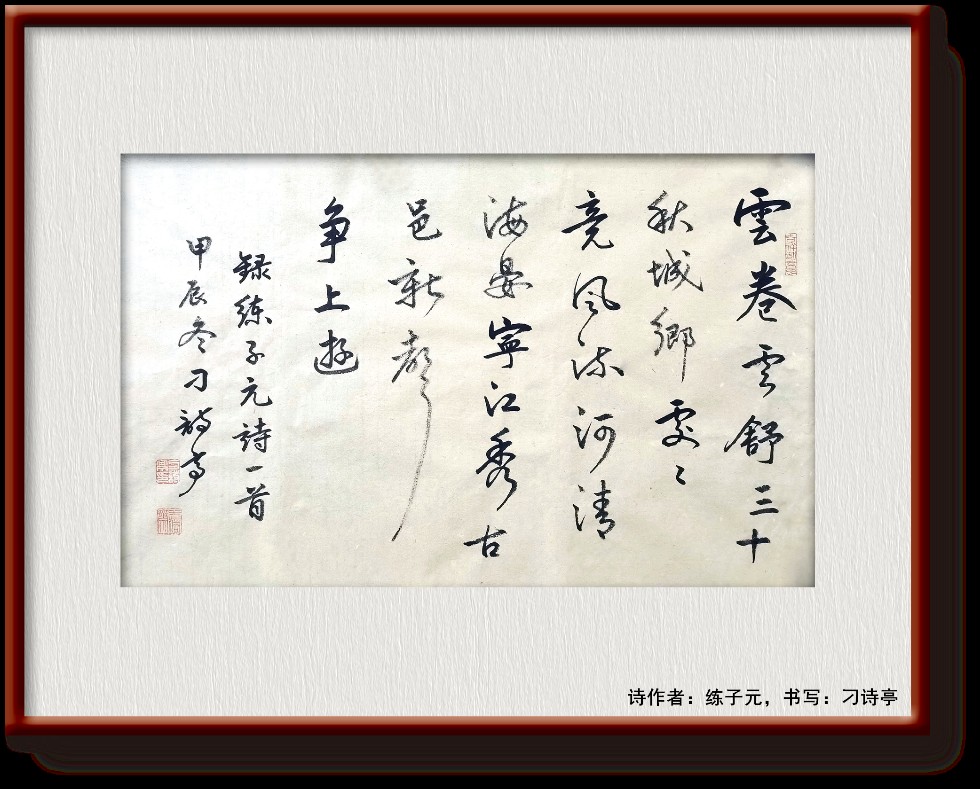 雲卷雲舒三十
秋城鄉處〻
竞風流河清
海晏寧江秀古
邑新聲
争上遊
録练子元詩一首
甲辰冬刁詩亭
诗作者：练子元，书写：刁诗亭